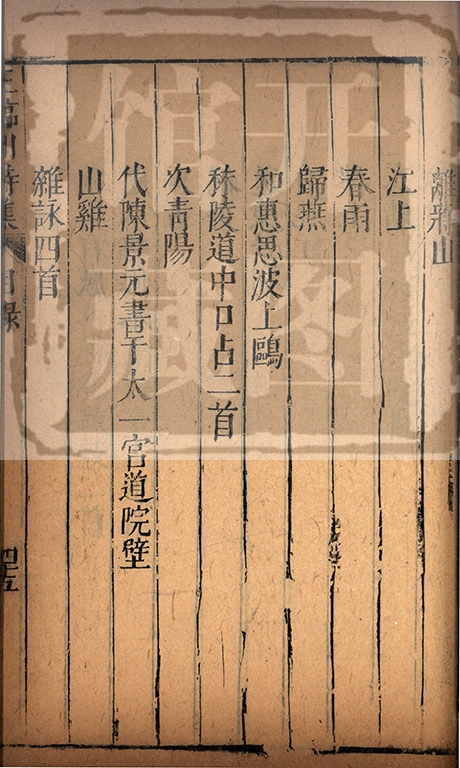 離蔣山
江上
春雨
歸燕
和惠思波上鷗
秣陵道中口占二首
次青陽
代陳景元書于太一宮道院壁
山雞
雜詠四首
王臨川詩集 目錄 四五